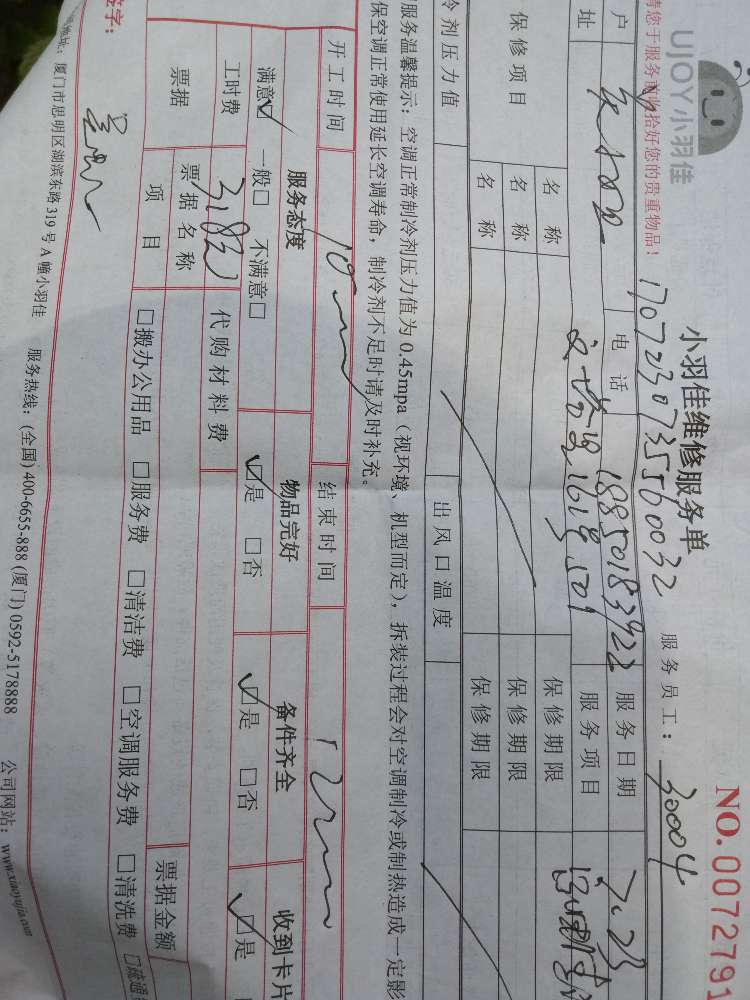 UJOY小羽佳
小羽佳维修服务单
NO.0072791
请您于服务前收拾好您的贵重物品!
1707230735560032
服务员工: 30004
户
电话 18850183922 服务日期 7.23
址
1618 509 服务项目
保修项目 名称 保修期限
名称 保修期限
名称 保修期限
冷剂压力值 出风口温度
服务温馨提示: 空调正常制冷剂压力值为 0.45mpa (视环境、机型而定), 拆装过程会对空调制冷或制热造成一定影
保空调正常使用延长空调寿命, 制冷剂不足时请及时补充。
开工时间 10 结束时间 12
服务态度 物品完好 备件齐全 收到卡片
满意☑ 一般□ 不满意□ ☑是 □否 ☑是 □否 ☑是
工时费 318 代购材料费
票据 票据名称 票据金额
项目 □搬办公用品 □服务费 □清洁费 □空调服务费 □清洗费 □疏通
签字:
地址: 厦门市思明区湖滨东路 319 号 A 幢小羽佳 服务热线: (全国) 400-6655-888 (厦门) 0592-5178888 公司网站: www.xiaoyujia.com